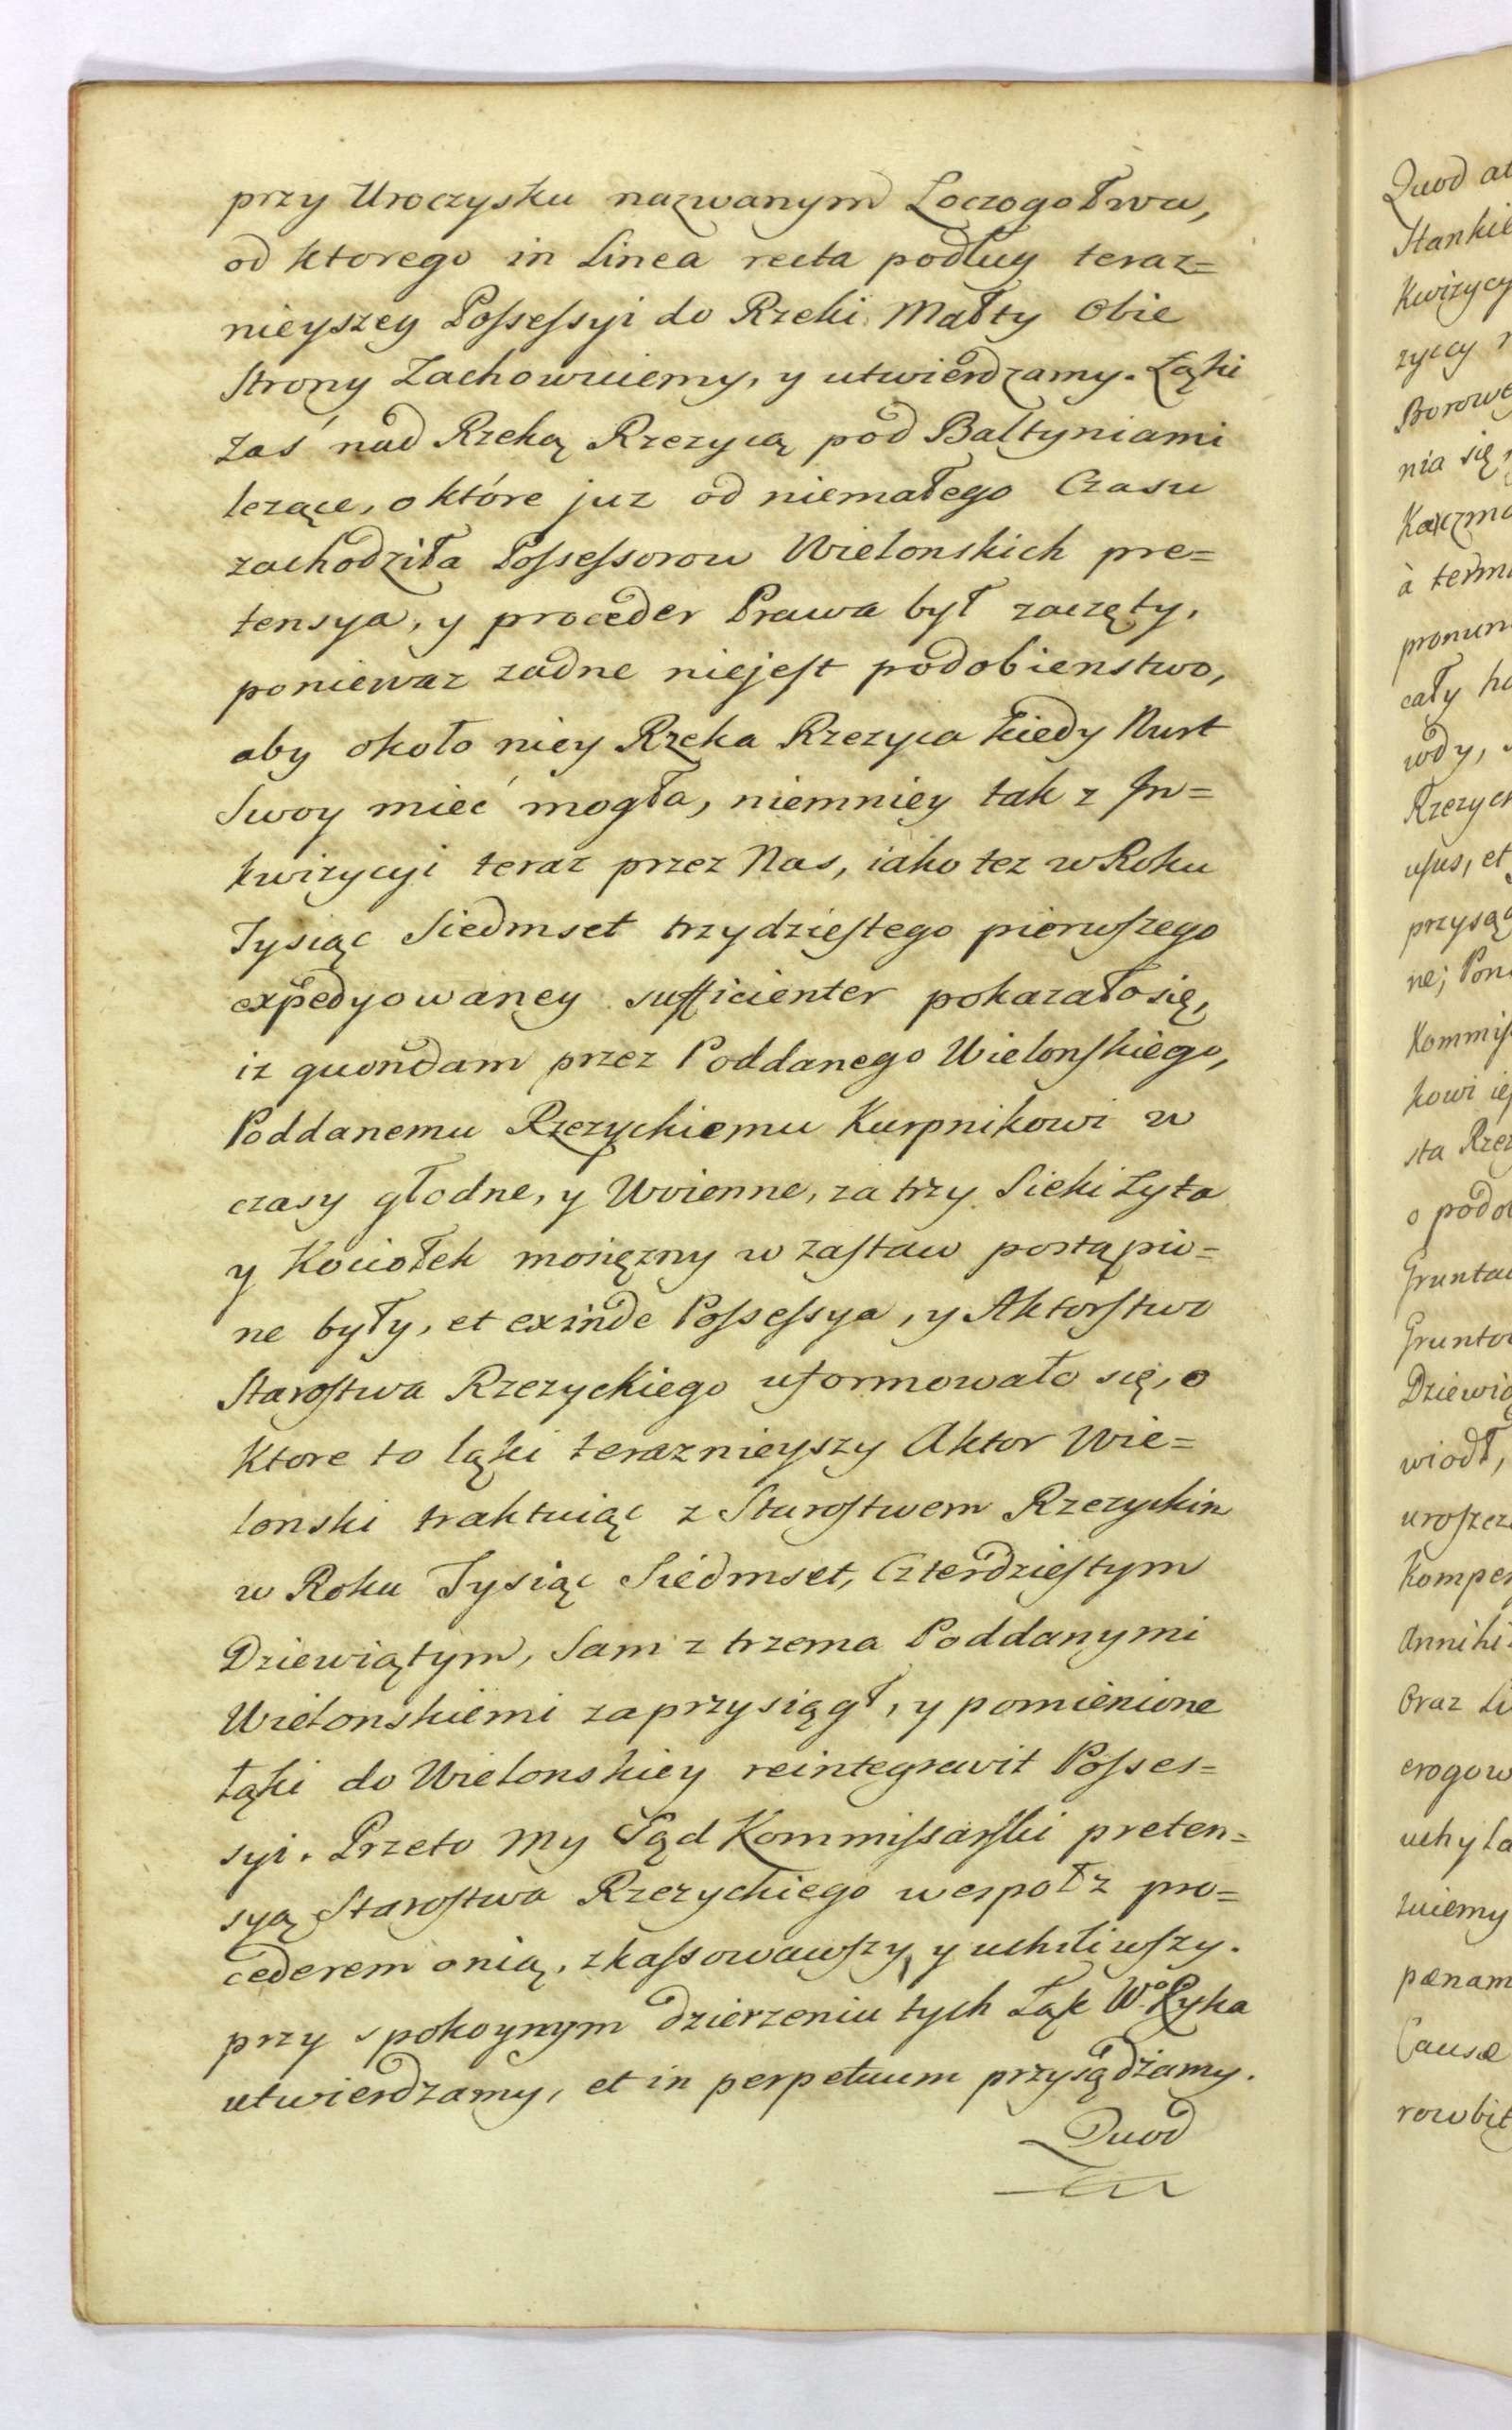 przy Uroczysku nazwanym Loczogołwa,
od ktorego in Linea recta podług teraz=
nieyszey Possessyi do Rzeki Małty Obie
Strony Zachowuiemy, y utwierdzamy. Łąki
zaś nad Rzeką Rzezycą pod Baltyniami
lezące, o które juz od niemałego Czasu
zachodziła Possessorow Wielonskich pre=
tensya, y proceder Prawa był zaczęty,
poniewaz zadne niejest podobienstwo,
aby około niey Rzeka Rzezyca kiedy Nurt
Swoy mieć mogła, niemniey tak z In=
kwizycyi teraz przez Nas, iako tez w Roku
Tysiąc Siedmset trzydziestego pierwszego
expedyowaney sufficienter pokazało się,
iz quondam przez Poddanego Wielonskiego,
Poddanemu Rzezyckiemu Kurpnikowi w
czasy głodne, y Woienne, za trzy Sieki Zyta
y Kociołek mosięzny w zastaw postąpio=
ne były, et exinde Possessya, y Aktorstwo
Starostwa Rzezyckiego uformowało się, o
Ktore to łąki teraznieyszy Aktor Wie=
lonski traktuiąc z Starostwem Rzezyckim
w Roku Tysiąc Siedmset, Czterdziestym
Dziewiątym, Sam z trzema Poddanymi
Wielonskiemi zaprzysiągł, y pomienione
łąki do Wielonskiey reintegravit Posses=
syi. Przeto My Sąd Kommissarski preten=
syą Starostwa Rzezyckiego wespoł z pro=
cederem o nią, zkassowawszy, y uchiliwszy.
przy spokoynym dzierzeniu tych Łąk Wo. Ryka
utwierdzamy, et in perpetuum przysądzamy.
Quod

Quod
Stankie
Kwizycy
zyccy
Borowe
nia się
Kaczma
à termi
pronun
cały
wody,
Rzezyck
usus, et
przysąg
ne; Pon
Kommis
kowi
sta Rzez
o podob
Grunta
Grunto
Dziewią
wiodł,
uroszcz
Kompen
Annihi
Oraz
erogow
uchyla
zuiemy
pœnam
Causæ
rowbit